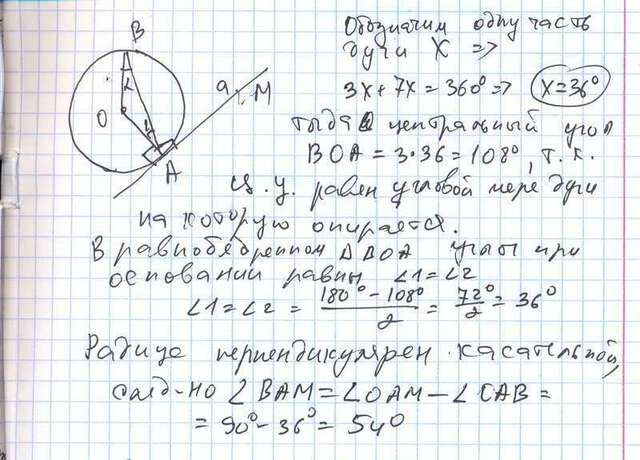 Обозначим одну часть
дуги X =>
3x + 7x = 360° => x = 36°
B
2
1
O
a
M
A
тогда центральный угол
BOA = 3·36 = 108°, т.к.
ц.у. равен угловой мере дуги
на которую опирается.
В равнобедренном △BOA углы при
основании равны ∠1=∠2
∠1=∠2 = 180° - 108° / 2 = 72° / 2 = 36°
Радиус перпендикулярен касательной,
след-но ∠BAM = ∠OAM - ∠OAB =
= 90° - 36° = 54°